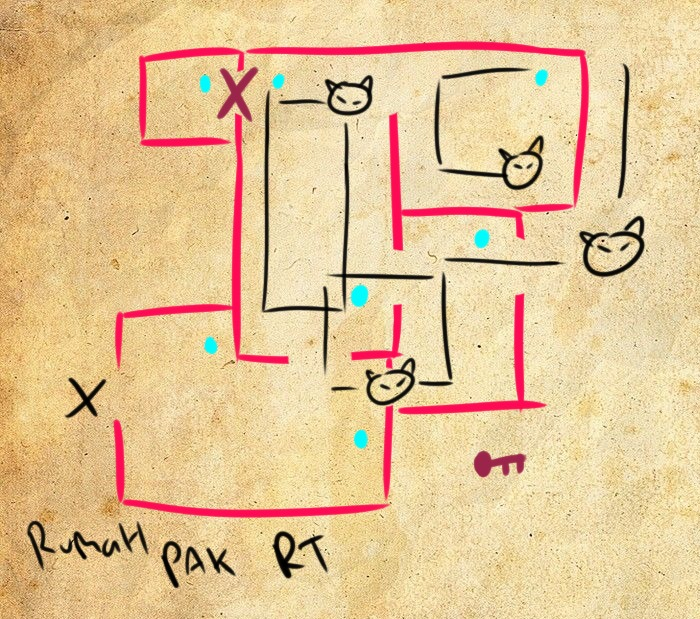 X
X
RumaH PAK RT